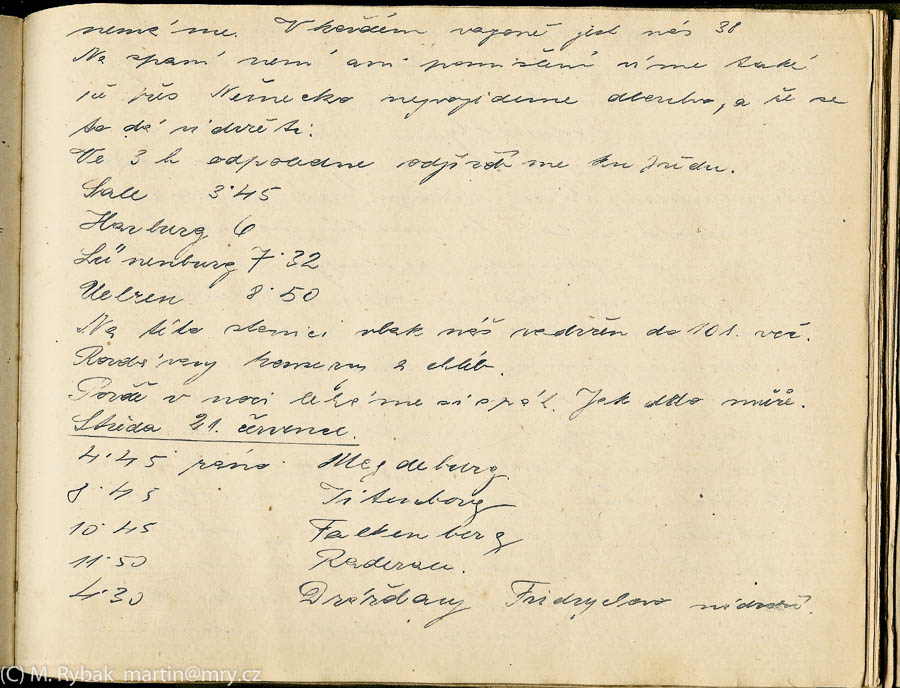 nemáme. V každém vagoně jest nás 38
Na spaní není ani pomišlení víme také
že přes Německo nepojedeme dlouho, a že se
to dá vidržeti.
Ve 3 h odpoledne odjíždíme ku jihu.
Sale 3·45
Harburg 6
Lünenburg 7·32
Uelzen 8·50
Na této stanici vlak náš zadržen do 10 h. več.
Rozdávany konservy a chléb.
Pozdě v noci leháme si spát. Jak kdo může.
Středa 21. července.
4·45 ráno Magdeburg
8·45 Vitenborg
10·45 Falkenberg
11·50 Raderau.
4·30 Drážďany Fridrychovo nádraží.
(C) M. Rybak martin@mry.cz